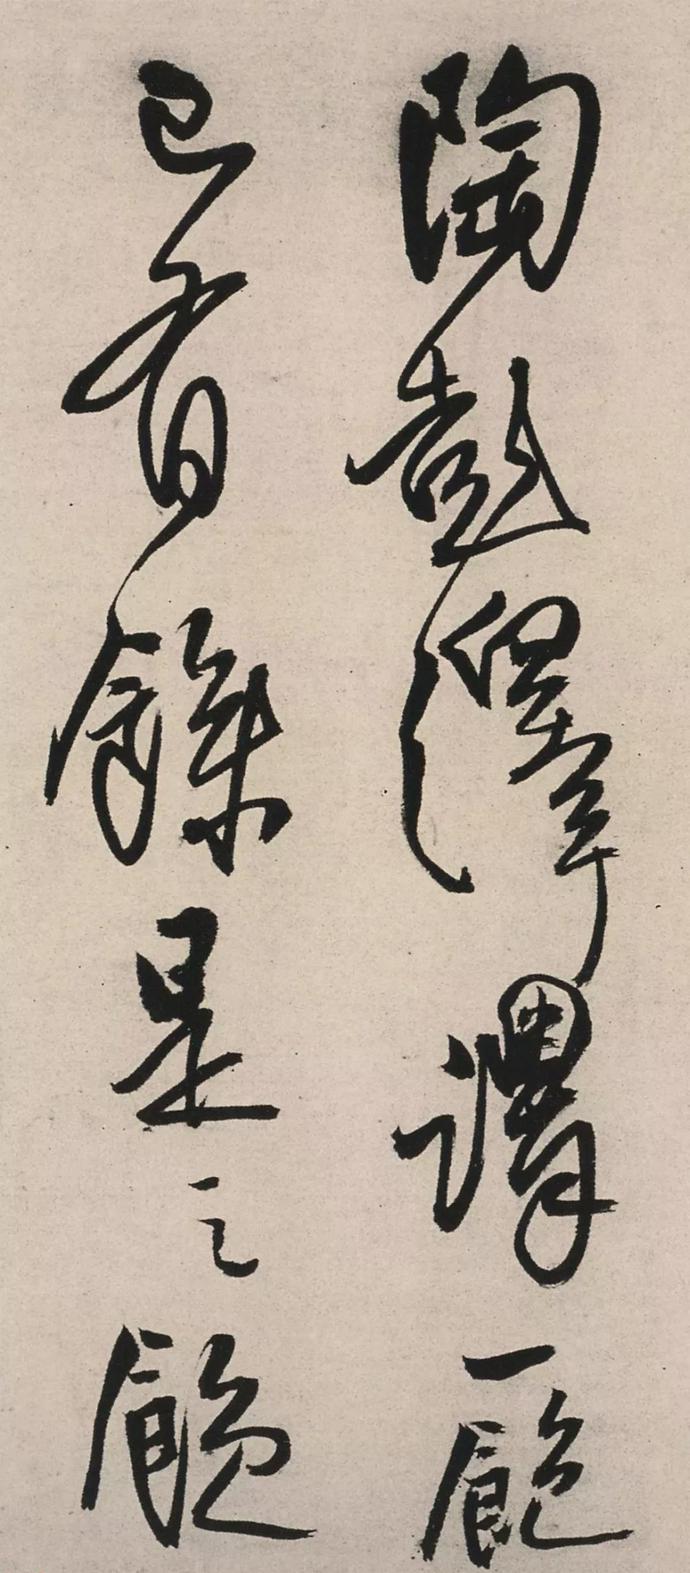 陶彭澤謂一飽
已有餘是之飽